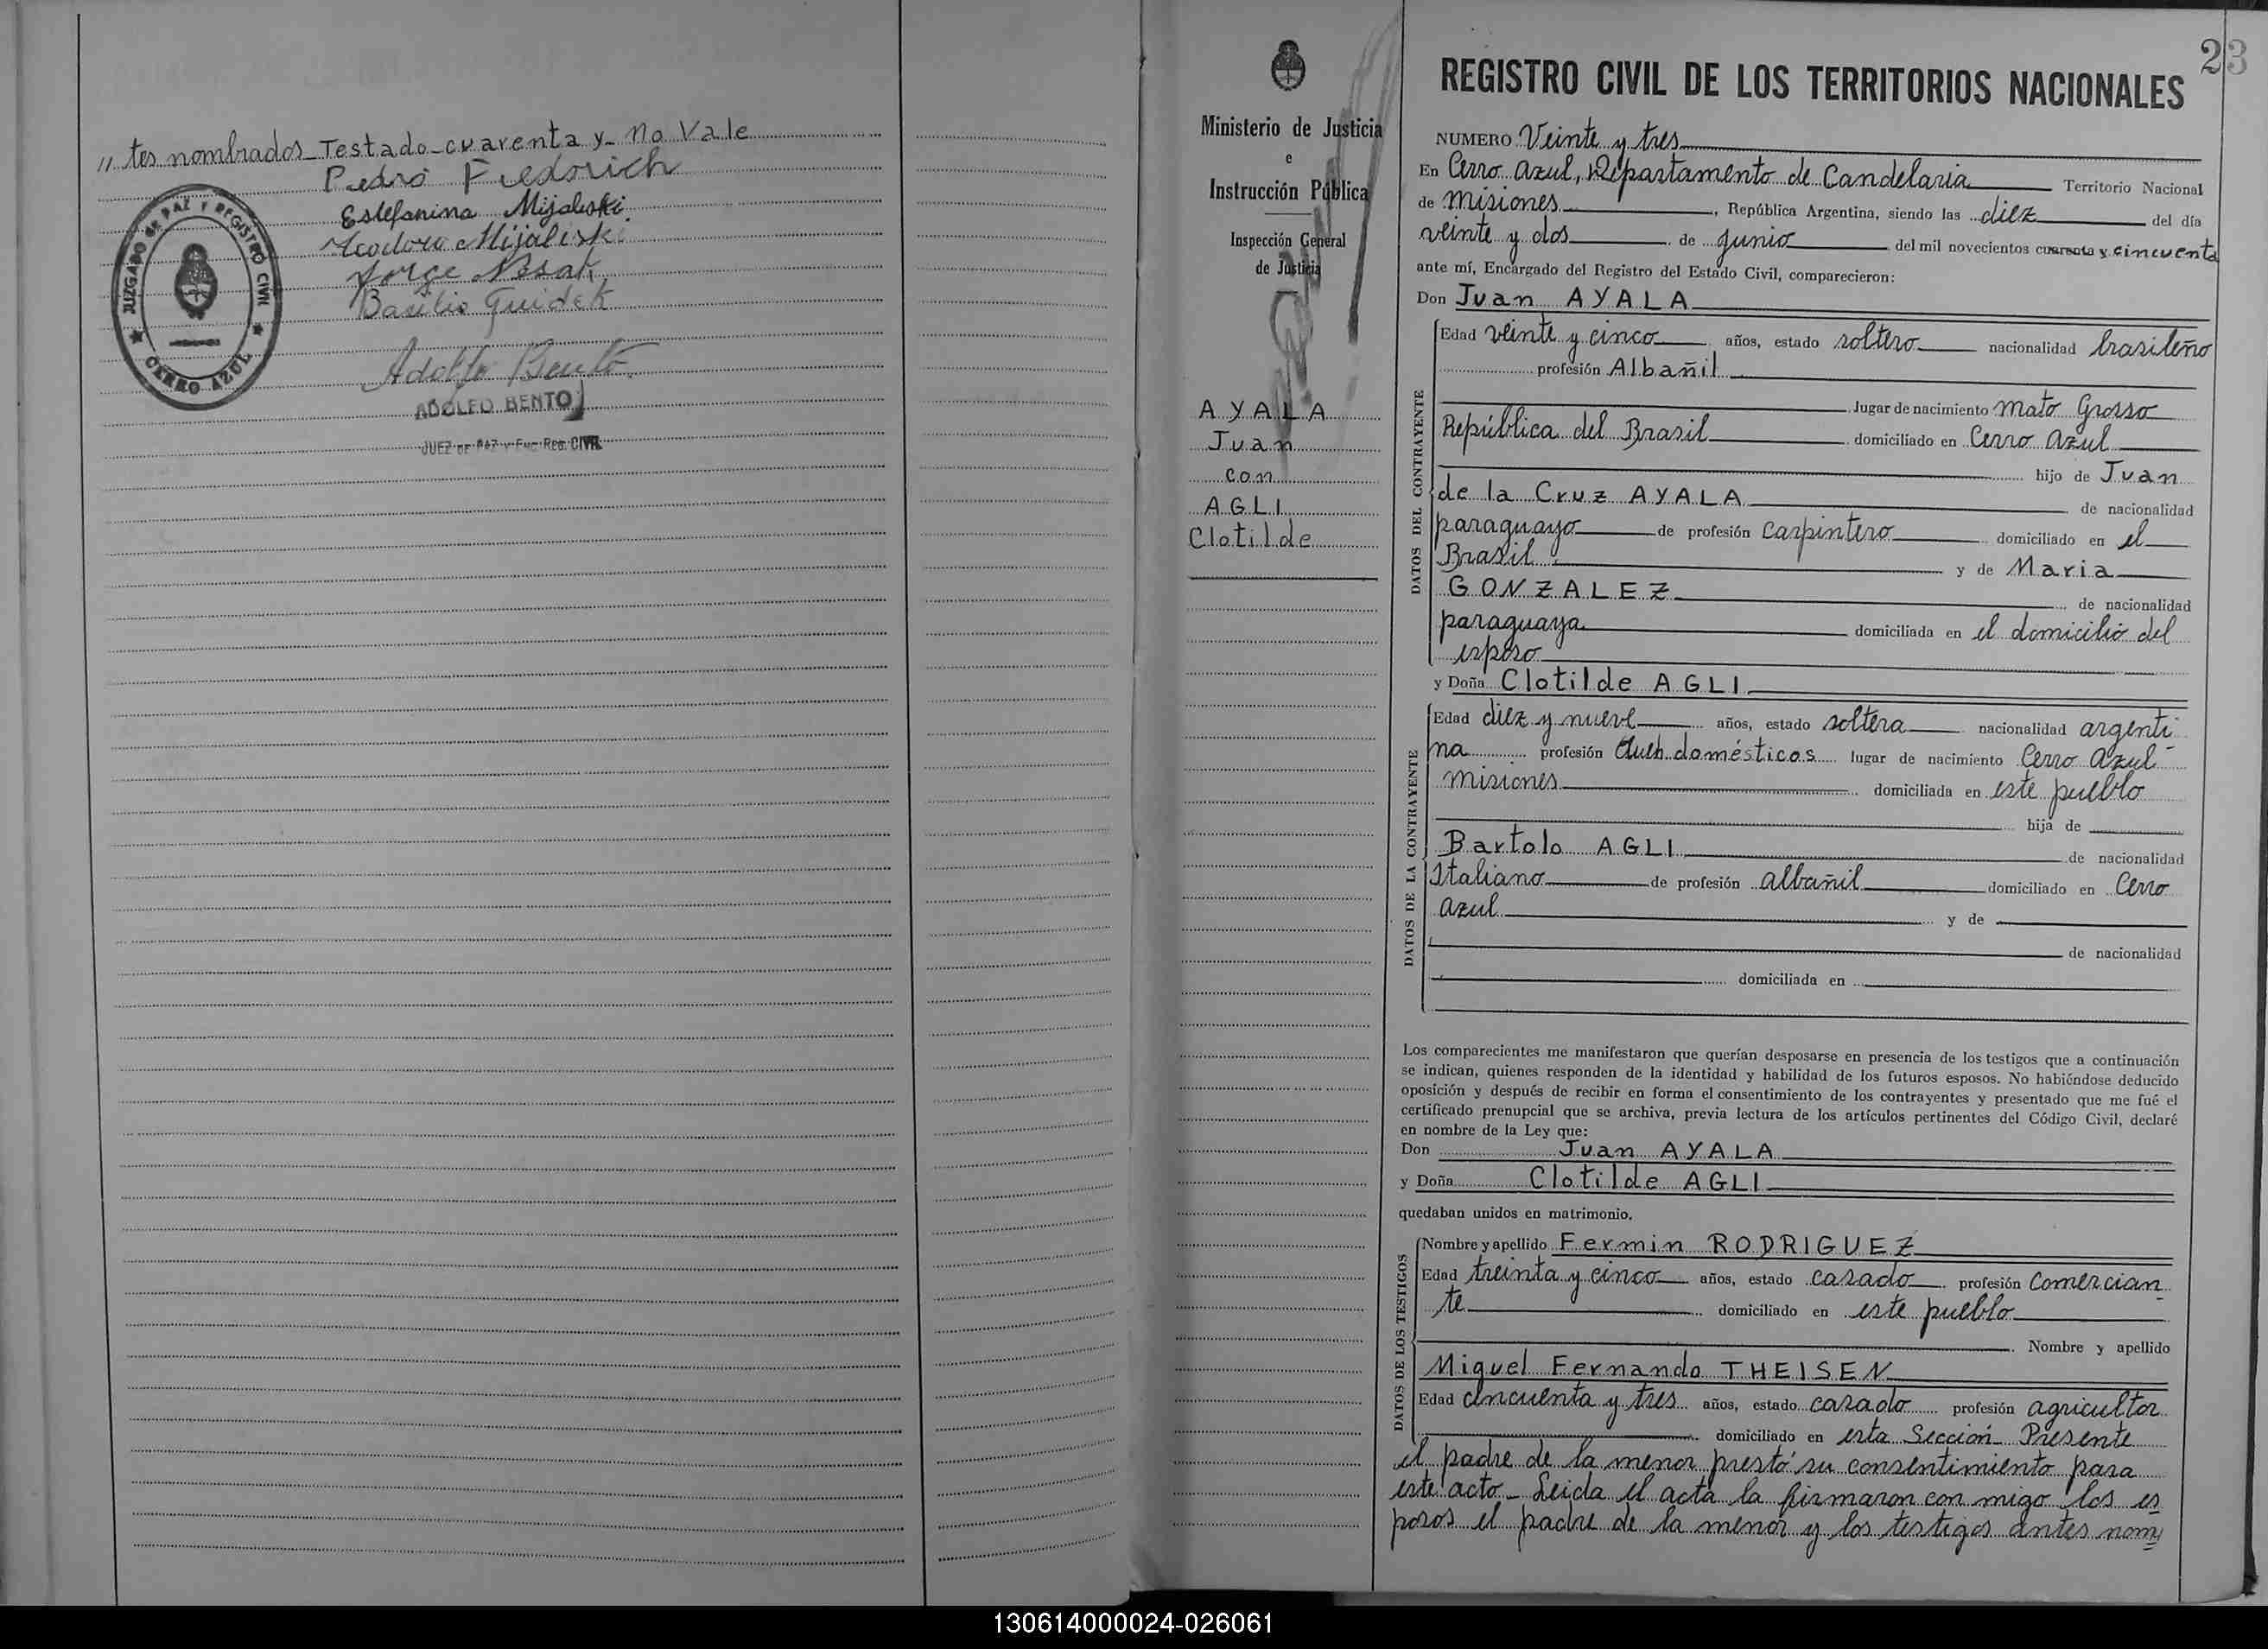 // tes nombrados_Testado_cuarenta y_ no Vale
Pedro Fiedorich
Estefanina Mijaliski
Teodoro Mijaliski
Jorge
Basilio Guidek
JUZGADO DE PAZ Y REGISTRO CIVIL
CERRO AZUL
Adolfo Bento
ADOLFO BENTO
JUEZ DE PAZ Y ENC. REG. CIVIL
Ministerio de Justicia
e
Instrucción Pública
Inspección General
de Justicia
AYALA
Juan
con
AGLI
Clotilde
23
REGISTRO CIVIL DE LOS TERRITORIOS NACIONALES
NUMERO Veinte y tres
En Cerro Azul, Departamento de Candelaria Territorio Nacional
de Misiones, República Argentina, siendo las diez del día
veinte y dos de Junio del mil novecientos cuarenta y cincuenta
ante mí, Encargado del Registro del Estado Civil, comparecieron:
Don Juan AYALA
DATOS DEL CONTRAYENTE
Edad veinte y cinco años, estado soltero nacionalidad brasileño
profesión Albañil
lugar de nacimiento Mato Grosso
República del Brasil domiciliado en Cerro Azul
hijo de Juan
de la Cruz AYALA de nacionalidad
paraguayo de profesión carpintero domiciliado en el
Brasil y de Maria
GONZALEZ de nacionalidad
paraguaya domiciliada en el domicilio del
esposo
y Doña Clotilde AGLI
DATOS DE LA CONTRAYENTE
Edad diez y nueve años, estado soltera nacionalidad argenti
na profesión Queh. domésticos lugar de nacimiento Cerro Azul-
Misiones domiciliada en este pueblo
hija de
Bartolo AGLI de nacionalidad
Italiano de profesión albañil domiciliado en Cerro
Azul y de
de nacionalidad
domiciliada en
Los comparecientes me manifestaron que querían desposarse en presencia de los testigos que a continuación
se indican, quienes responden de la identidad y habilidad de los futuros esposos. No habiéndose deducido
oposición y después de recibir en forma el consentimiento de los contrayentes y presentado que me fué el
certificado prenupcial que se archiva, previa lectura de los artículos pertinentes del Código Civil, declaré
en nombre de la Ley que:
Don Juan AYALA
y Doña Clotilde AGLI
quedaban unidos en matrimonio.
DATOS DE LOS TESTIGOS
Nombre y apellido Fermin RODRIGUEZ
Edad treinta y cinco años, estado casado profesión comercian
te domiciliado en este pueblo
Nombre y apellido
Miguel Fernando THEISEN
Edad cincuenta y tres años, estado casado profesión agricultor
domiciliado en esta Sección_ Presente
el padre de la menor prestó su consentimiento para
este acto_ Leida el acta la firmaron con migo los es
posos el padre de la menor y los testigos antes nom
130614000024-026061